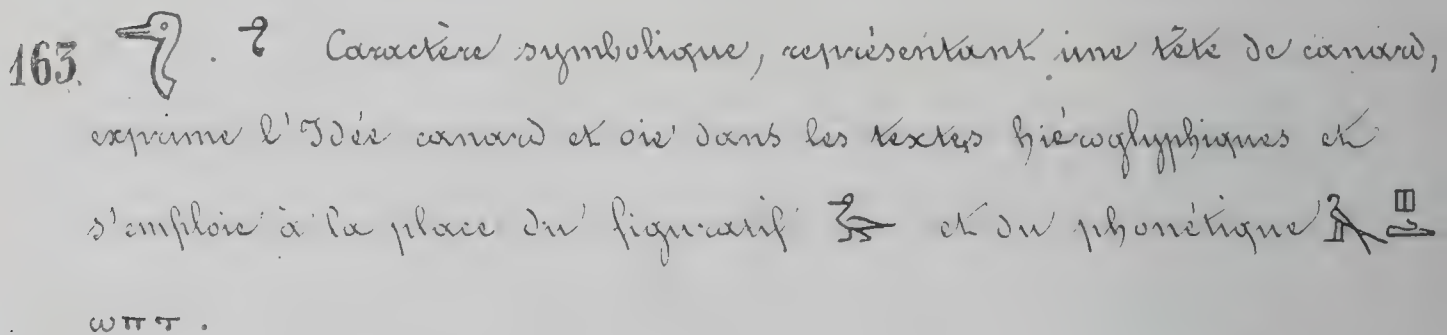 163. 𓅿 . 𓅿 Caractère symbolique, représentant une tête de canard,
exprime l'Idée canard et oie dans les textes hiéroglyphiques et
s'emploie à la place du figuratif 𓅬 et du phonétique
ⲱⲡⲧ.